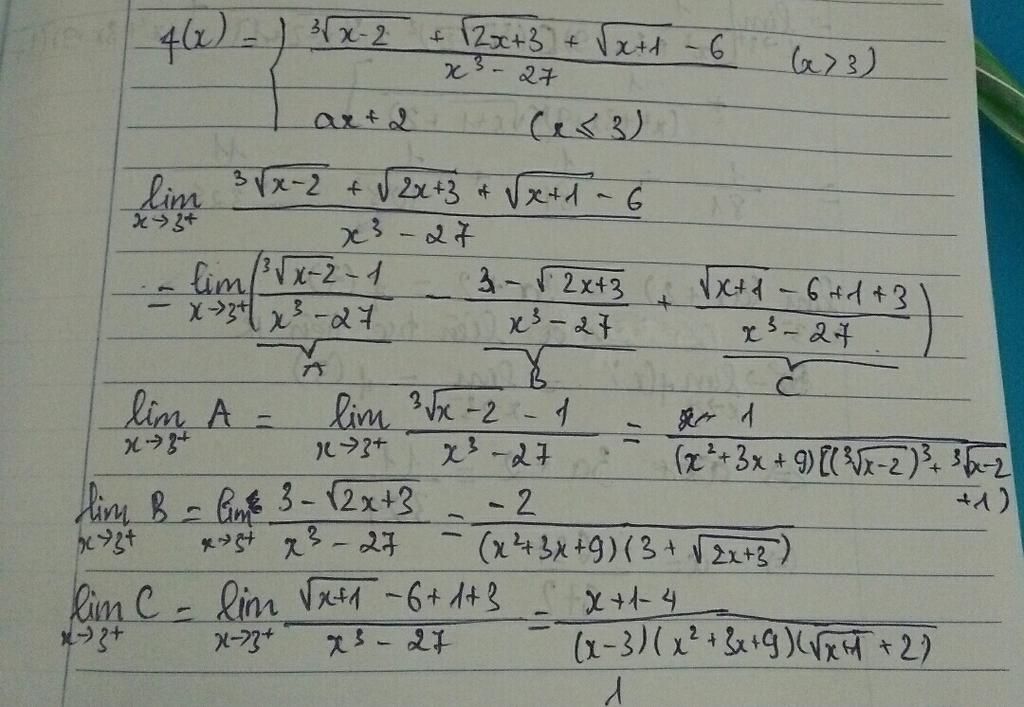 f(x) = { (³√(x-2) + √(2x+3) + √(x+1) - 6) / (x³ - 27) (x > 3)
ax + 2 (x ≤ 3)
lim x→3⁺ (³√(x-2) + √(2x+3) + √(x+1) - 6) / (x³ - 27)
= lim x→3⁺ ( (³√(x-2) - 1) / (x³ - 27) - (3 - √(2x+3)) / (x³ - 27) + (√(x+1) - 6 + 1 + 3) / (x³ - 27) )
A B C
lim x→3⁺ A = lim x→3⁺ (³√(x-2) - 1) / (x³ - 27) = 1 / (x² + 3x + 9)[(³√(x-2))³ + ³√(x-2) + 1)
lim x→3⁺ B = lim x→3⁺ (3 - √(2x+3)) / (x³ - 27) = -2 / (x² + 3x + 9)(3 + √(2x+3))
lim x→3⁺ C = lim x→3⁺ (√(x+1) - 6 + 1 + 3) / (x³ - 27) = (x + 1 - 4) / (x - 3)(x² + 3x + 9)(√(x+1) + 2)
1